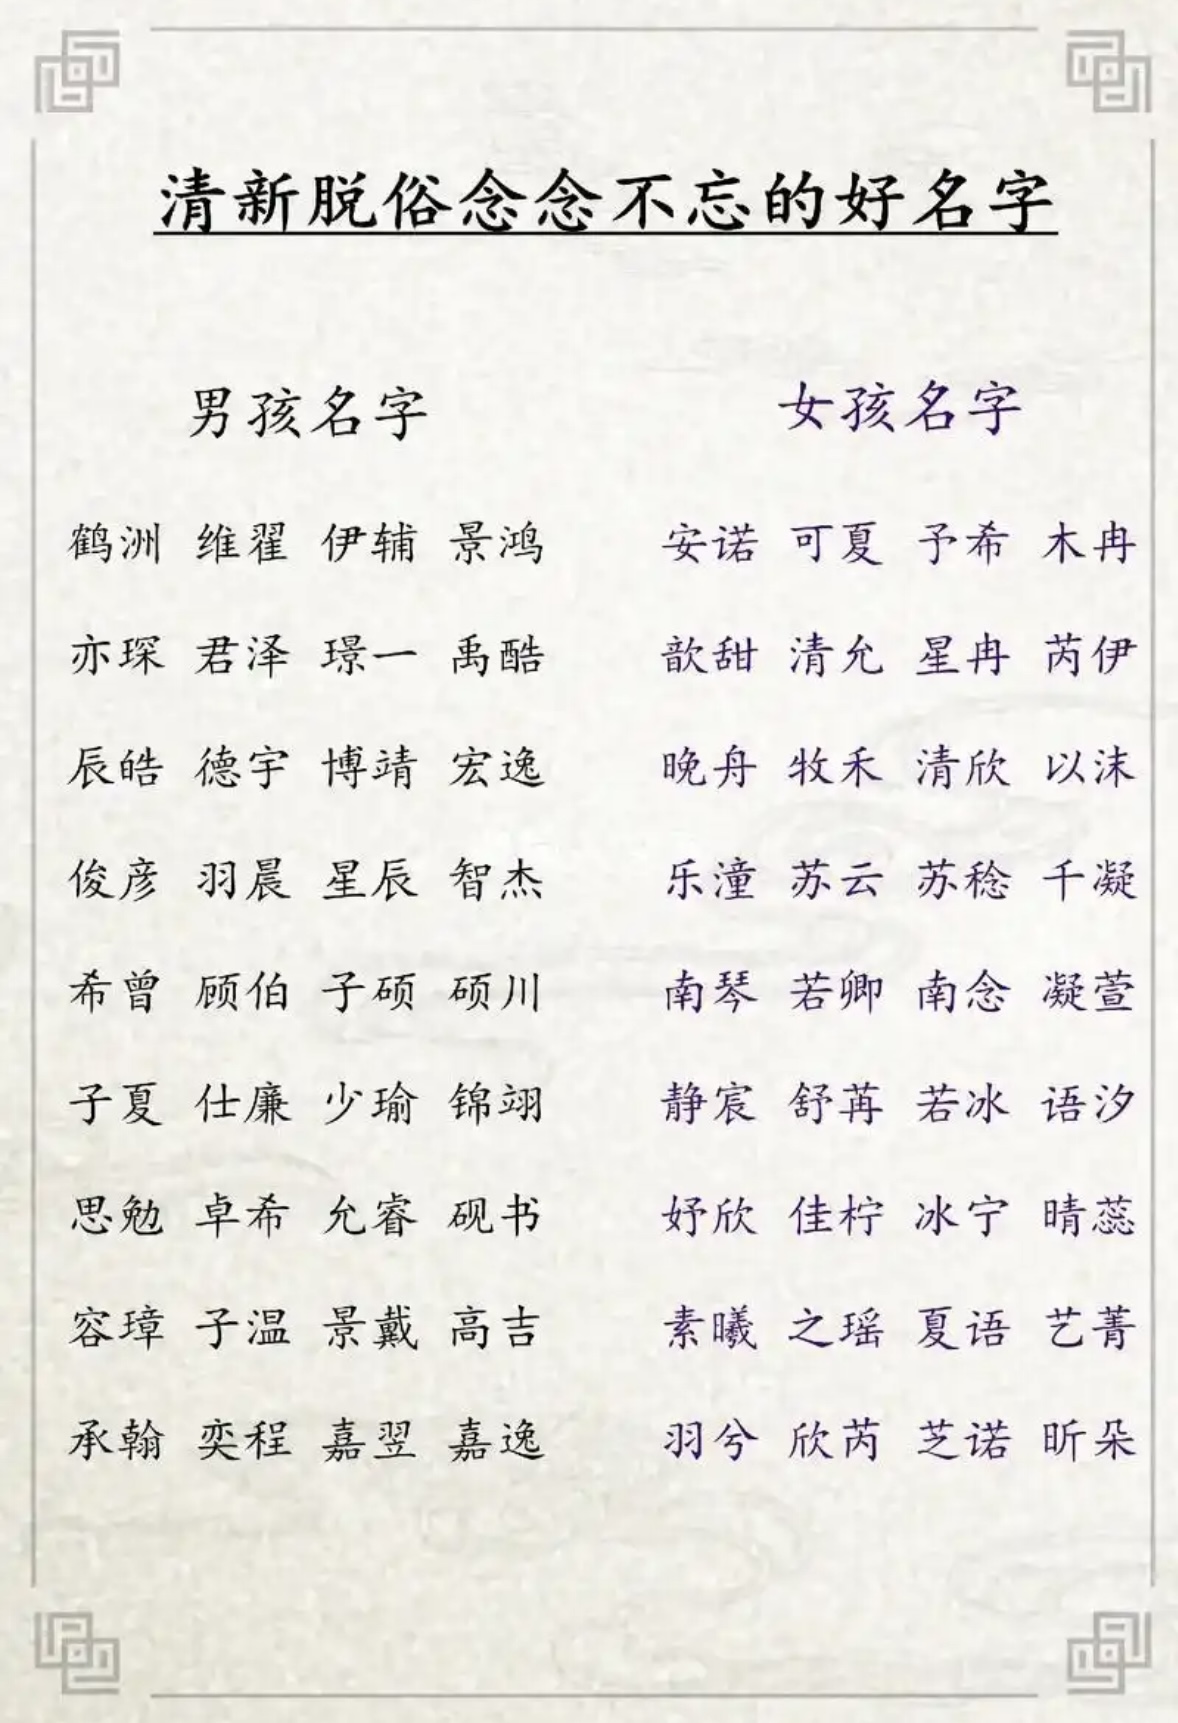 清新脱俗念念不忘的好名字
男孩名字 女孩名字
鹤洲 维翟 伊辅 景鸿 安诺 可夏 予希 木冉
亦琛 君泽 璟一 禹酷 歆甜 清允 星冉 芮伊
辰皓 德宇 博靖 宏逸 晚舟 牧禾 清欣 以沫
俊彦 羽晨 星辰 智杰 乐潼 苏云 苏稔 千凝
希曾 顾伯 子硕 硕川 南琴 若卿 南念 凝萱
子夏 仕廉 少瑜 锦翊 静宸 舒苒 若冰 语汐
思勉 卓希 允睿 砚书 妤欣 佳柠 冰宁 晴蕊
容璋 子温 景戴 高吉 素曦 之瑶 夏语 艺菁
承翰 奕程 嘉翌 嘉逸 羽兮 欣芮 芝诺 昕朵